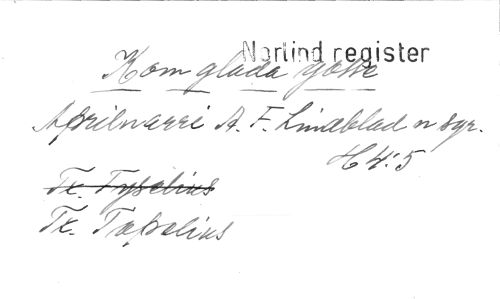 Norlind register
Kom glada gosse
Aprilnarri A. F. Lindblad n syr.
H 4:5
Tx. Topelius